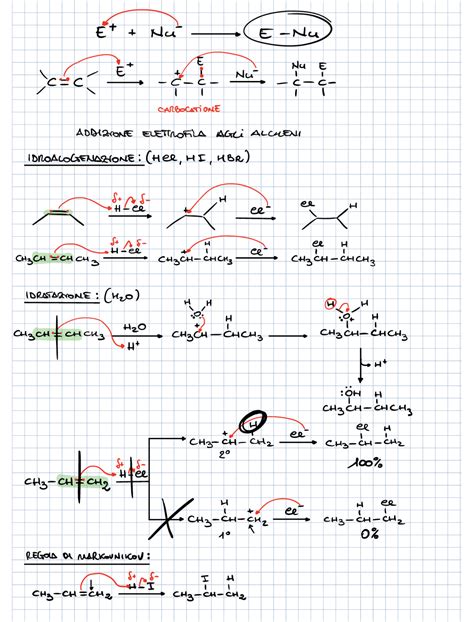 E⁺ + Nu⁻ → E-Nu
C=C E⁺ → -C⁺-C- E Nu⁻ → Nu E -C-C-
CARBOCATIONE
ADDIZIONE ELETTROFILA AGLI ALCHENI
IDROALOGENAZIONE: (HCl, HI, HBr)
δ+ δ- H-Cl → + H Cl⁻ → Cl H
CH₃CH=CHCH₃ δ+ δ- H-Cl → CH₃CH⁺-CHCH₃ H Cl⁻ → CH₃CH-CHCH₃ Cl H
IDRATAZIONE: (H₂O)
CH₃CH=CHCH₃ H₂O H⁺ → H H :O: CH₃CH⁺-CHCH₃ H → H H :O⁺ CH₃CH-CHCH₃ H
↓ → H⁺
:ÖH H
CH₃CH-CHCH₃
CH₃-CH=CH₂ δ+ δ- H-Cl → CH₃-CH⁺-CH₂ H 2° Cl⁻ → CH₃-CH-CH₂ Cl H
100%
CH₃-CH-CH₂⁺ H 1° Cl⁻ → CH₃-CH-CH₂ H Cl
0%
REGOLA DI MARKOVNIKOV:
CH₃-CH=CH₂ δ+ δ- H-I → CH₃-CH-CH₂ I H